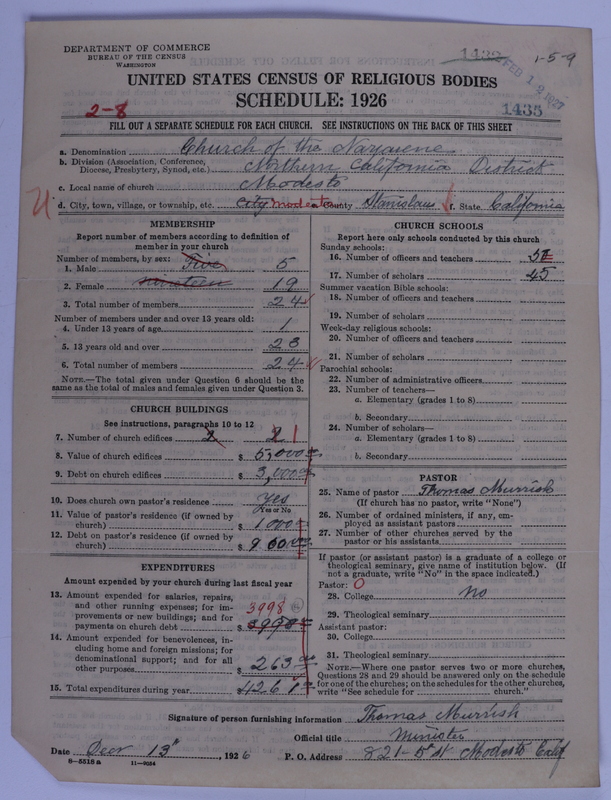 DEPARTMENT OF COMMERCE
BUREAU OF THE CENSUS
WASHINGTON
1432 FEB 12 1927 1-5-9
UNITED STATES CENSUS OF RELIGIOUS BODIES
SCHEDULE: 1926
2-8 1435
FILL OUT A SEPARATE SCHEDULE FOR EACH CHURCH. SEE INSTRUCTIONS ON THE BACK OF THIS SHEET
a. Denomination Church of the Nazarene
b. Division (Association, Conference, Diocese, Presbytery, Synod, etc.) Northern California District
c. Local name of church Modesto
d. City, town, village, or township, etc. City Modesto County Stanislaus f. State California
MEMBERSHIP
Report number of members according to definition of
member in your church
Number of members, by sex:
1. Male Five 5
2. Female nineteen 19
3. Total number of members 24
Number of members under and over 13 years old:
4. Under 13 years of age 1
5. 13 years old and over 23
6. Total number of members 24
NOTE.—The total given under Question 6 should be the
same as the total of males and females given under Question 3.
CHURCH BUILDINGS
See instructions, paragraphs 10 to 12
7. Number of church edifices 2 2 1
8. Value of church edifices $ 5,000
9. Debt on church edifices $ 3,000
10. Does church own pastor's residence Yes
Yes or No
11. Value of pastor's residence (if owned by
church) $ 1000
12. Debt on pastor's residence (if owned by
church) $ 900
EXPENDITURES
Amount expended by your church during last fiscal year
13. Amount expended for salaries, repairs,
and other running expenses; for im-
provements or new buildings; and for
payments on church debt $ 3998
14. Amount expended for benevolences, in-
cluding home and foreign missions; for
denominational support; and for all
other purposes $ 263
15. Total expenditures during year $ 4261
CHURCH SCHOOLS
Report here only schools conducted by this church
Sunday schools:
16. Number of officers and teachers 5
17. Number of scholars 45
Summer vacation Bible schools:
18. Number of officers and teachers
19. Number of scholars
Week-day religious schools:
20. Number of officers and teachers
21. Number of scholars
Parochial schools:
22. Number of administrative officers
23. Number of teachers—
a. Elementary (grades 1 to 8)
b. Secondary
24. Number of scholars—
a. Elementary (grades 1 to 8)
b. Secondary
PASTOR
25. Name of pastor Thomas Murrish
(If church has no pastor, write "None")
26. Number of ordained ministers, if any, em-
ployed as assistant pastors
27. Number of other churches served by the
pastor or his assistants
If pastor (or assistant pastor) is a graduate of a college or
theological seminary, give name of institution below. (If
not a graduate, write "No" in the space indicated.)
Pastor: 0
28. College no
29. Theological seminary
Assistant pastor:
30. College
31. Theological seminary
NOTE.—Where one pastor serves two or more churches,
Questions 28 and 29 should be answered only on the schedule
for one of the churches; on the schedules for the other churches,
write "See schedule for church."
Signature of person furnishing information Thomas Murrish
Official title Minister
Date Decr 13", 1926 P. O. Address 821-5th St Modesto Calif
8-5518a 11-9054